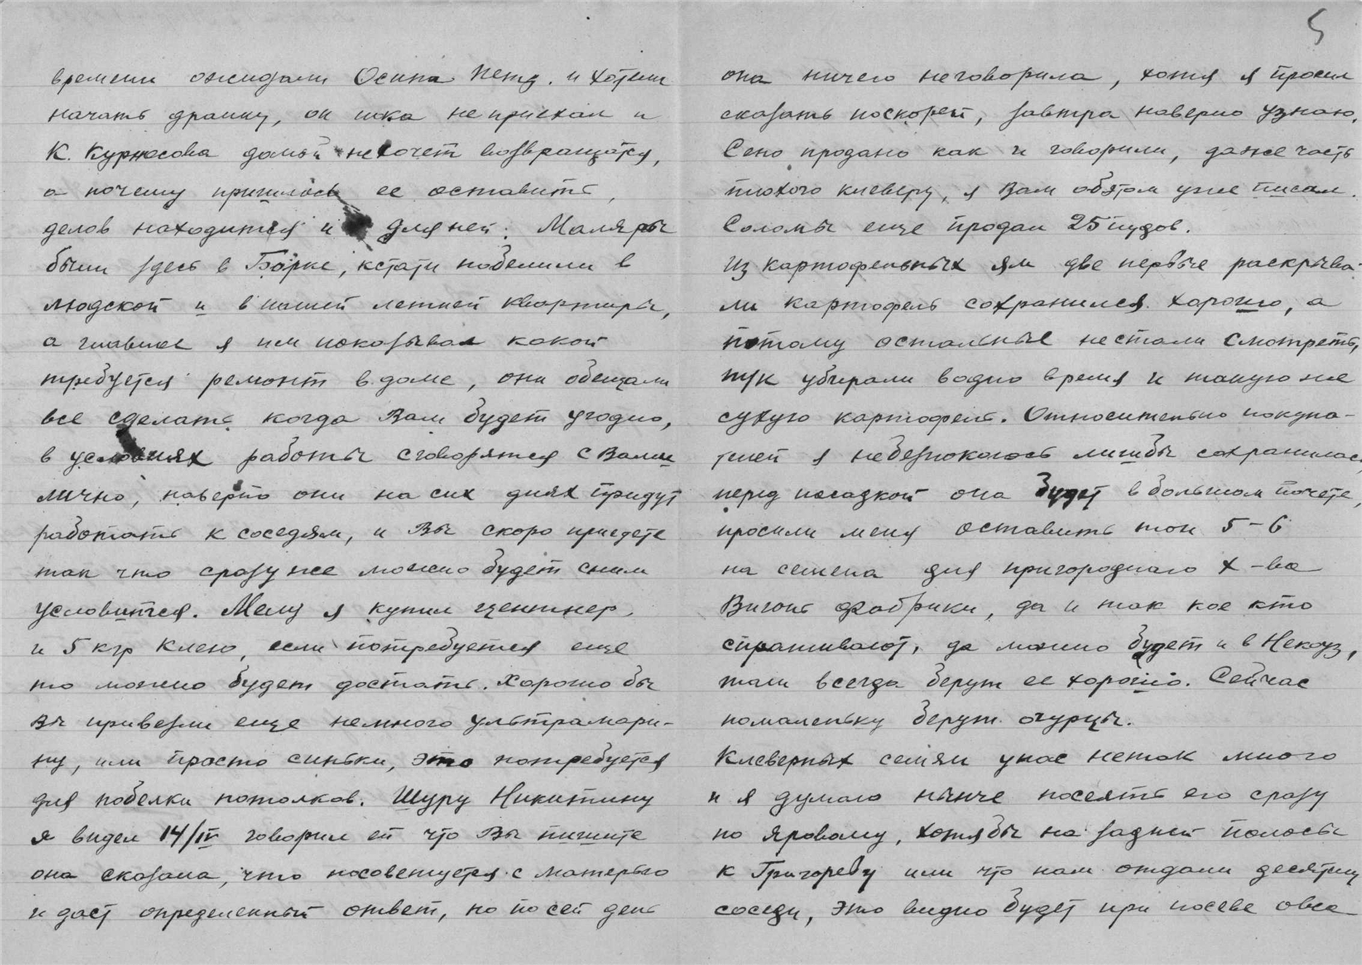 времени ожидали Осипа Петр. и хотели
начать дранку, он пока неприехал и
К. Курносова домой нехочет возвращатся,
а почему пришлось ее оставить,
делов находится и для ней. Маляры
были здесь в Борке, кстати побелили в
людской и в нашей летней квартиры,
а главное я им показывал какой
требуется ремонт в доме, они обещали
все сделать когда Вам будет угодно,
в условиях работы сговорятся с Вами
лично, наверно они на сих днях придут
работать к соседям, и Вы скоро приедете
так что сразу же можно будет с ним
условится. Мелу я купил центнер,
и 5 кгр клею, если потребуется еще
то можно будет достать. Хорошо бы
Вы привезли еще немного ультрамари-
ну, или просто синьки, это потребуется
для побелки потолков. Шуру Никитину
я видел 14/IV говорил ей что Вы пишите
она сказала, что посоветуется с матерью
и даст определенный ответ, но по сей день
5
она ничего неговорила, хотя я просил
сказать поскорей, завтра наверно узнаю.
Сено продано как и говорили, даже часть
плохого клеверу, я Вам обэтом уже писал.
Соломы еще продал 25 пудов.
Из картофельных ям две первые раскрыва-
ли картофель сохранился хорошо, а
потому остальные нестали смотреть,
тук убирали водно время и такую же
сухую картофель. Относительно покупа-
телей я небезпокоюсь лишбы сохранилась
перед посадкой она будет в большом почете,
просили меня оставить тон 5-6
на семена для пригородняго х-ва
Вигонь фабрики, да и так кое кто
спрашивают, да можно будет и в Некоуз,
там всегда берут ее хорошо. Сейчас
помаленьку берут огурцы.
Клеверных семян унас нетак много
и я думаю нынче посеять его сразу
по яровому, хотябы на задней полосы
к Григореву или что нам отдали десятину
соседи, это видно будет при посеве овса